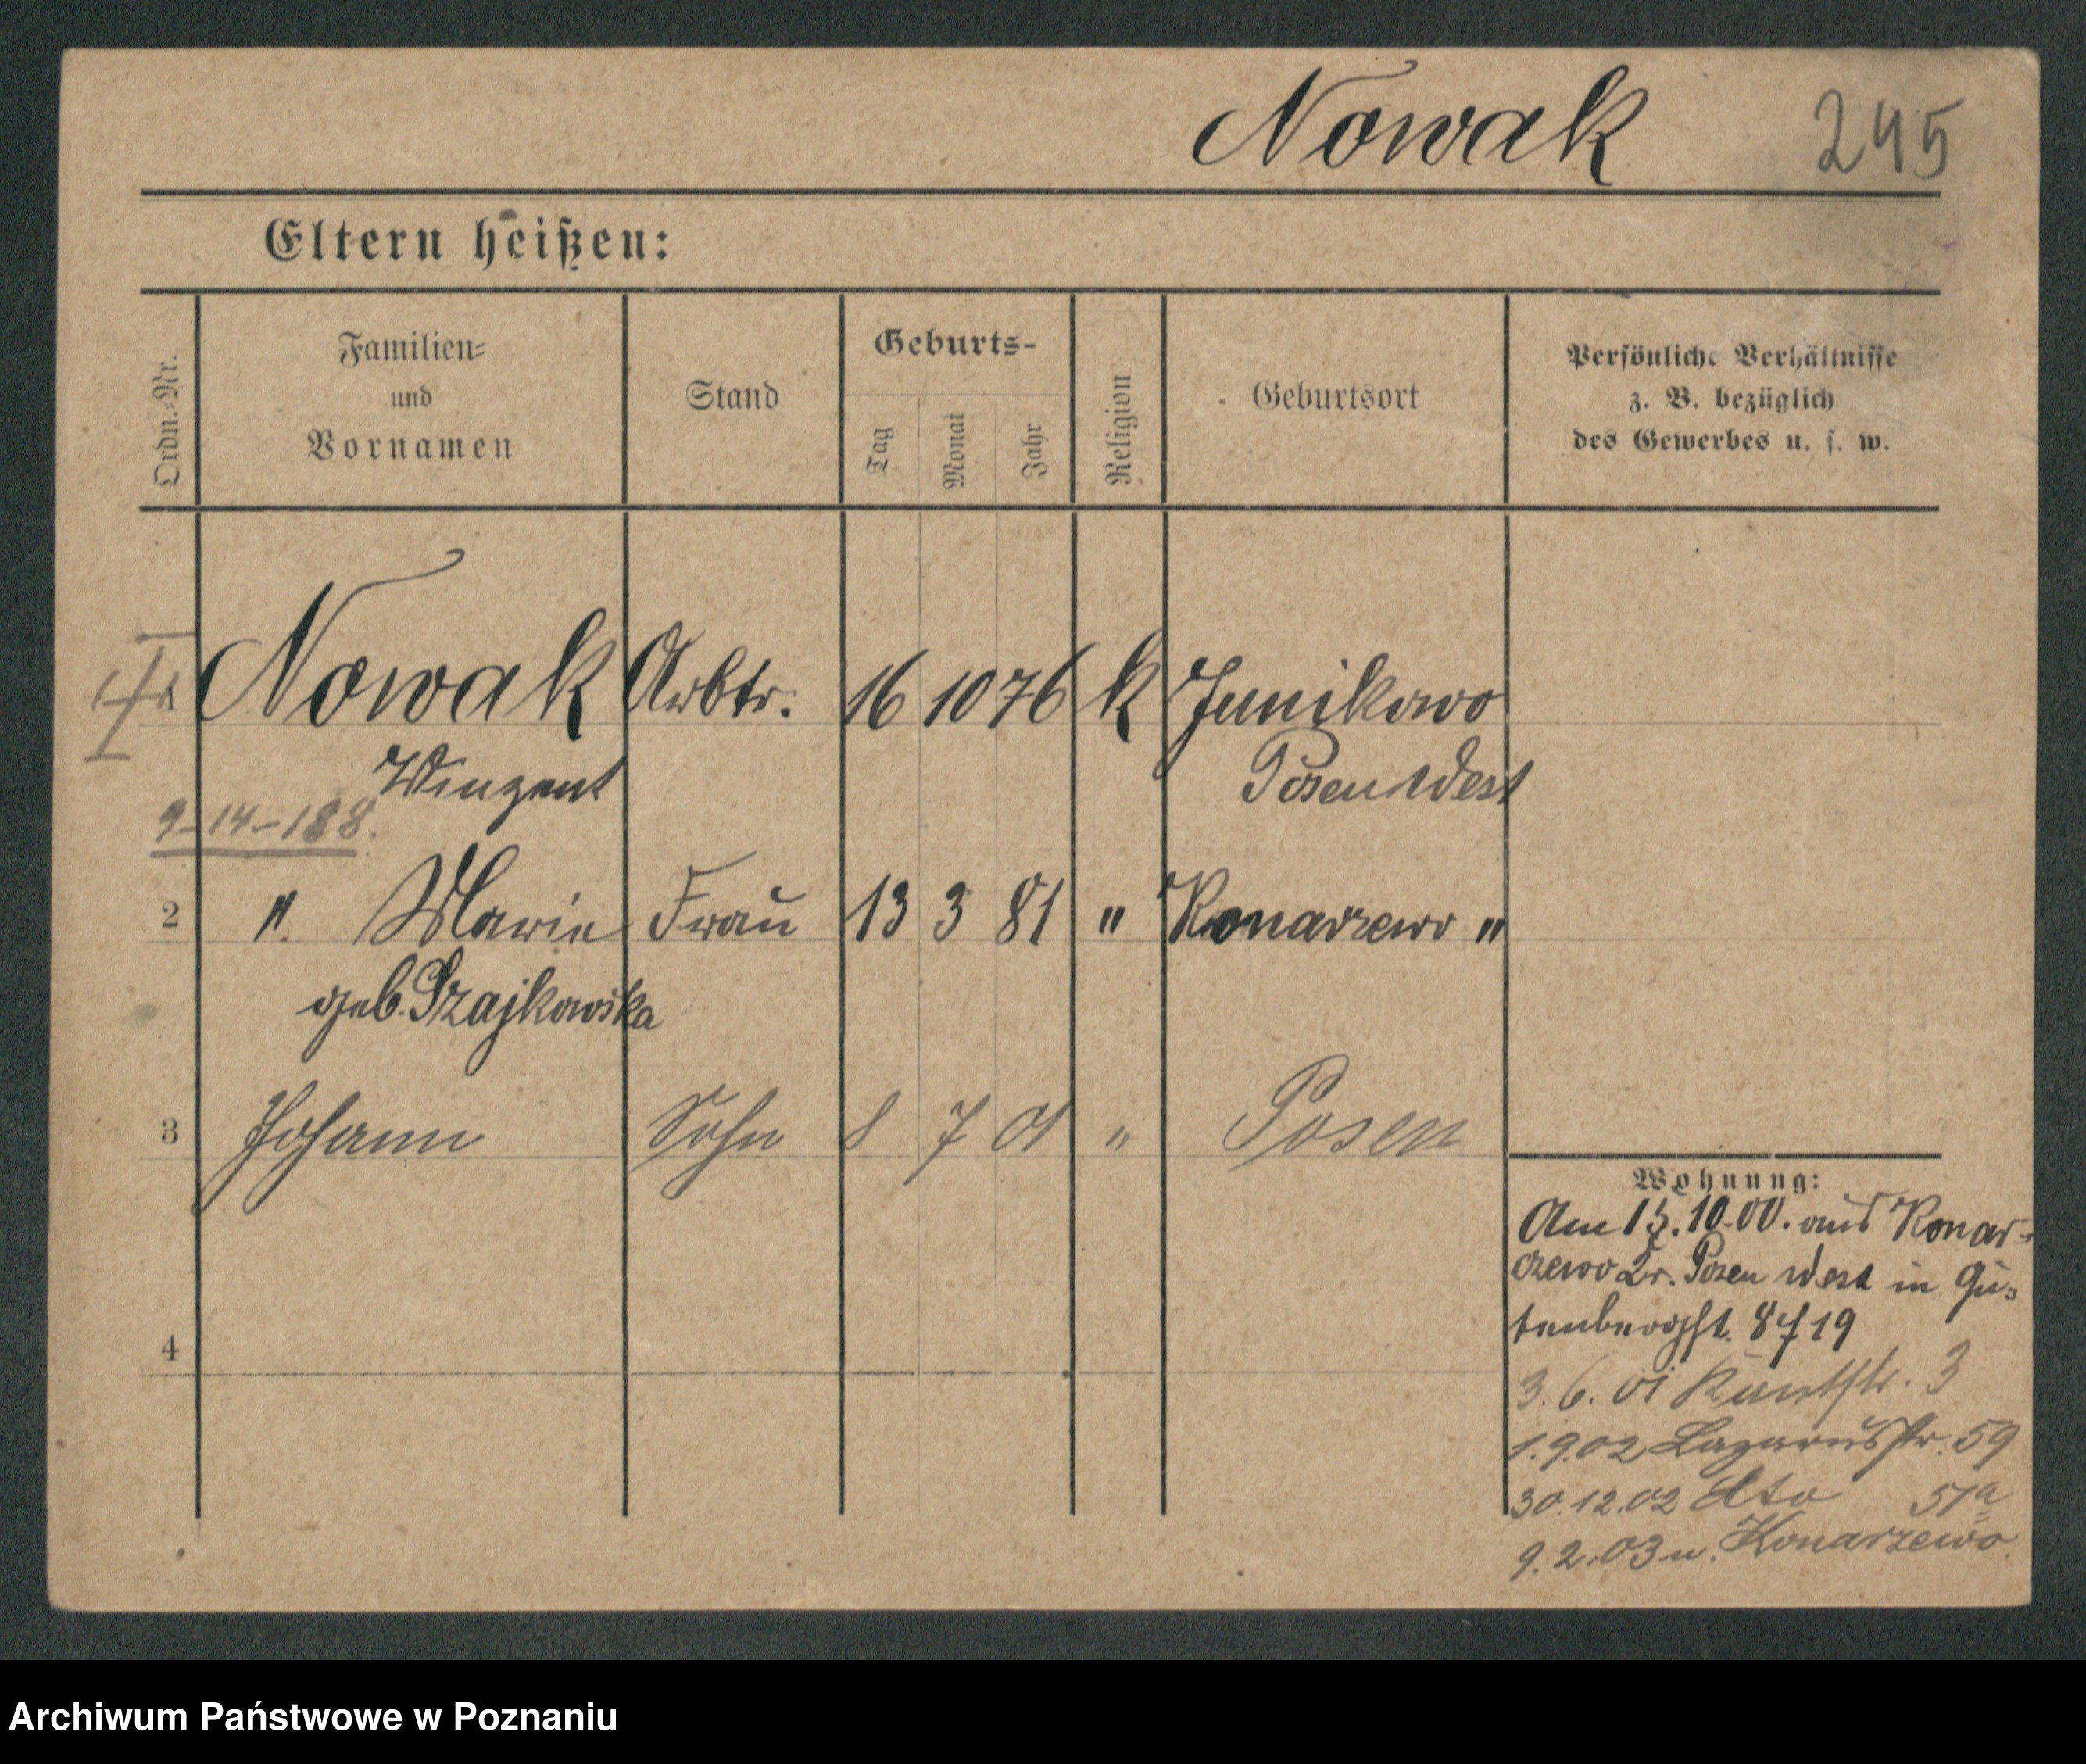 Nowak 245
Eltern heißen:
Ordn.-Nr.
Familien-
und
Vornamen
Stand
Geburts-
Tag
Monat
Jahr
Religion
Geburtsort
Persönliche Verhältnisse
z. B. bezüglich
des Gewerbes u. s. w.
1 Nowak Arbtr. 16 10 76 k Junikowo
Winzent Posen West
9-14-188.
2 " Marie Frau 13 3 81 " Konarzewo "
geb. Szajkowska
3 Johann Sohn 8 7 01 " Posen
Wohnung:
Am 15.10.00. aus Konar-
zewo Kr. Posen West in Gu-
tenbergst. 8 f 19
4
3.6.01 Kantstr. 3
1.9.02 Lazarusstr. 59
30.12.02 dto 51a
9.2.03 n. Konarzewo
Archiwum Państwowe w Poznaniu